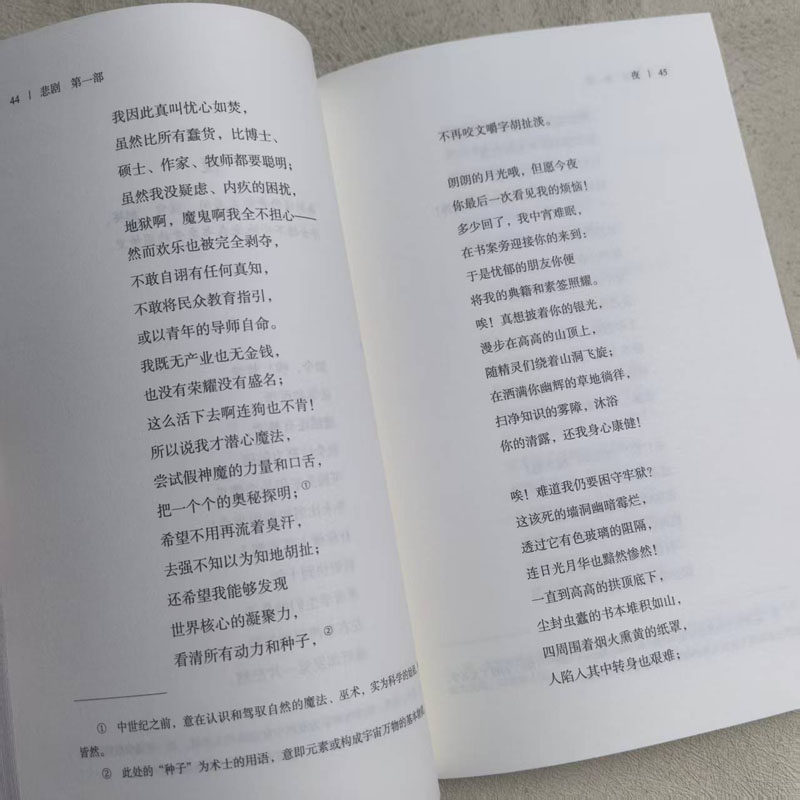 44 | 悲剧 第一部
我因此真叫忧心如焚，
虽然比所有蠢货，比博士、
硕士、作家、牧师都要聪明；
虽然我没疑虑、内疚的困扰，
地狱啊，魔鬼啊我全不担心——
然而欢乐也被完全剥夺，
不敢自诩有任何真知，
不敢将民众教育指引，
或以青年的导师自命。
我既无产业也无金钱，
也没有荣耀没有盛名；
这么活下去啊连狗也不肯！
所以说我才潜心魔法，
尝试假神魔的力量和口舌，
把一个个的奥秘探明；①
希望不用再流着臭汗，
去强不知以为知地胡扯；
还希望我能够发现
世界核心的凝聚力，
看清所有动力和种子，②
① 中世纪之前，意在认识和驾驭自然的魔法、巫术，实为科学的
皆然。
② 此处的“种子”为术士的用语，意即元素或构成宇宙万物的基本
夜 | 45
不再咬文嚼字胡扯淡。
朗朗的月光哦，但愿今夜
你最后一次看见我的烦恼！
多少回了，我中宵难眠，
在书案旁迎接你的来到：
于是忧郁的朋友你便
将我的典籍和素签照耀。
唉！真想披着你的银光，
漫步在高高的山顶上，
随精灵们绕着山洞飞旋；
在洒满你幽辉的草地徜徉，
扫净知识的雾障，沐浴
你的清露，还我身心康健！
唉！难道我仍要困守牢狱？
这该死的墙洞幽暗霉烂，
透过它有色玻璃的阻隔，
连日光月华也黯然惨然！
一直到高高的拱顶底下，
尘封虫蠹的书本堆积如山，
四周围着烟火熏黄的纸罩，
人陷入其中转身也艰难；